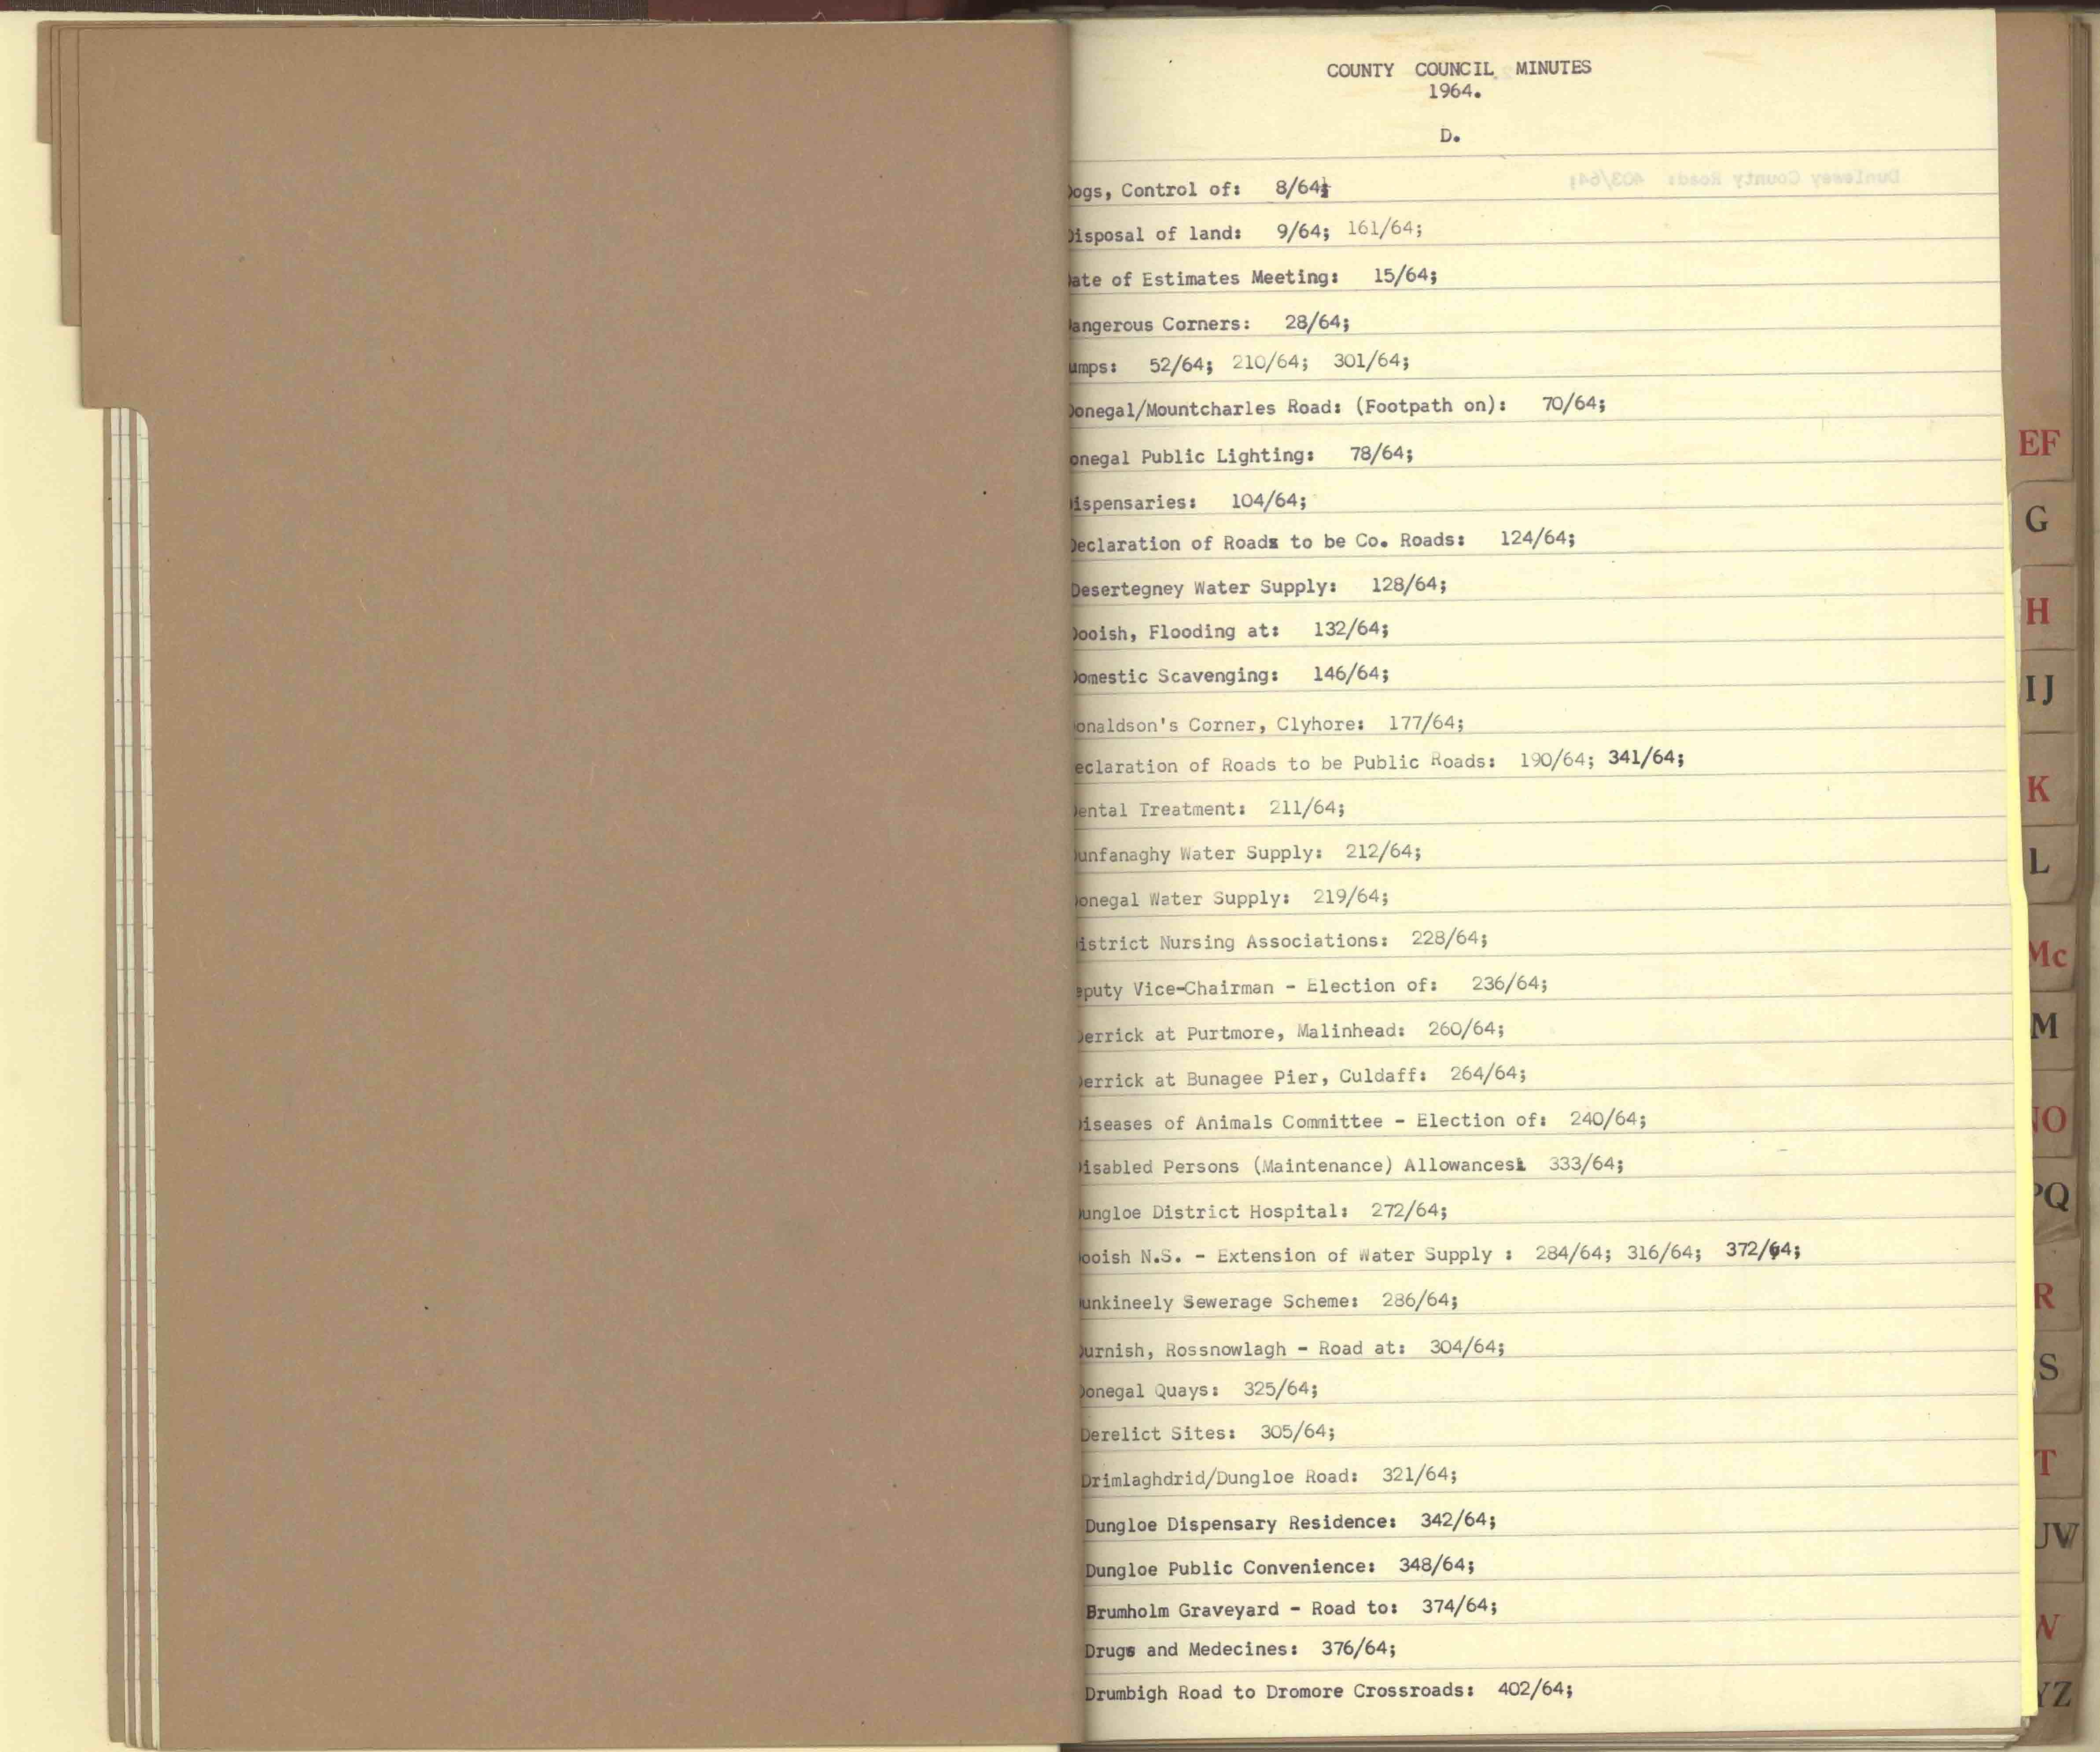 COUNTY COUNCIL MINUTES
1964.
D.
Dogs, Control of: 8/64;
Disposal of land: 9/64; 161/64;
Date of Estimates Meeting: 15/64;
Dangerous Corners: 28/64;
umps: 52/64; 210/64; 301/64;
Donegal/Mountcharles Road: (Footpath on): 70/64;
onegal Public Lighting: 78/64;
Dispensaries: 104/64;
Declaration of Roads to be Co. Roads: 124/64;
Desertegney Water Supply: 128/64;
Dooish, Flooding at: 132/64;
Domestic Scavenging: 146/64;
onaldson's Corner, Clyhore: 177/64;
eclaration of Roads to be Public Roads: 190/64; 341/64;
Dental Treatment: 211/64;
Dunfanaghy Water Supply: 212/64;
Donegal Water Supply: 219/64;
District Nursing Associations: 228/64;
eputy Vice-Chairman - Election of: 236/64;
Derrick at Purtmore, Malinhead: 260/64;
Derrick at Bunagee Pier, Culdaff: 264/64;
Diseases of Animals Committee - Election of: 240/64;
Disabled Persons (Maintenance) Allowances: 333/64;
Dungloe District Hospital: 272/64;
Dooish N.S. - Extension of Water Supply : 284/64; 316/64; 372/64;
Dunkineely Sewerage Scheme: 286/64;
Durnish, Rossnowlagh - Road at: 304/64;
Donegal Quays: 325/64;
Derelict Sites: 305/64;
Drimlaghdrid/Dungloe Road: 321/64;
Dungloe Dispensary Residence: 342/64;
Dungloe Public Convenience: 348/64;
Drumholm Graveyard - Road to: 374/64;
Drugs and Medecines: 376/64;
Drumbigh Road to Dromore Crossroads: 402/64;
Dunlewey County Road: 403/64;
EF
G
H
IJ
K
L
Mc
M
NO
PQ
R
S
T
UV
W
YZ